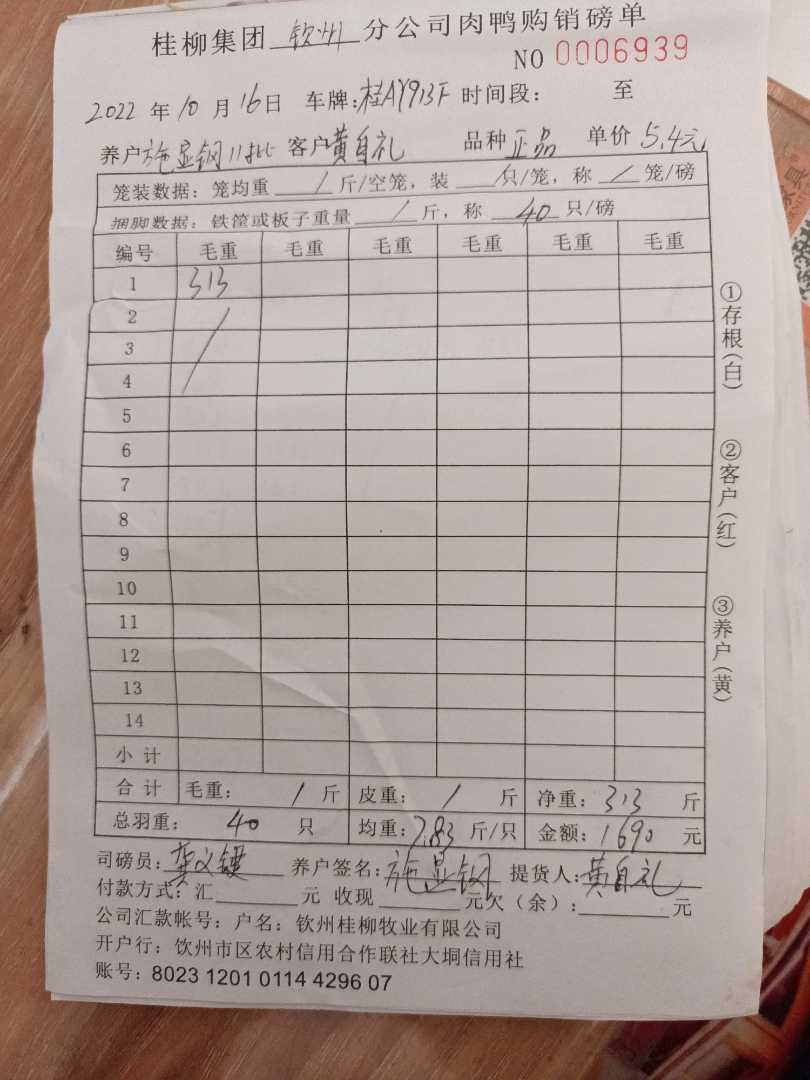 桂柳集团 钦州 分公司肉鸭购销磅单
NO 0006939
2022 年 10 月 16 日 车牌:桂AY913F 时间段: 至
养户 施显钢11批 客户 黄自礼 品种 正品 单价 5.4元
笼装数据:笼均重 / 斤/空笼,装 / 只/笼,称 / 笼/磅
捆脚数据:铁筐或板子重量 / 斤,称 40 只/磅
编号 毛重 毛重 毛重 毛重 毛重 毛重
1 313
2 /
3
4
5
6
7
8
9
10
11
12
13
14
小计
合计 毛重: / 斤 皮重: / 斤 净重: 313 斤
总羽重: 40 只 均重: 7.83 斤/只 金额: 1690 元
司磅员: 养户签名: 施显钢 提货人: 黄自礼
付款方式:汇 元 收现 元欠(余): 元
公司汇款帐号:户名:钦州桂柳牧业有限公司
开户行:钦州市区农村信用合作联社大垌信用社
账号:8023 1201 0114 4296 07
①存根(白)
②客户(红)
③养户(黄)